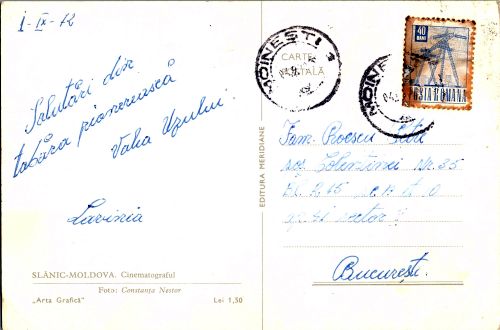 1-IX-72
Salutări din
tabăra pionerească
Valea Uzului.
Lavinia
SLĂNIC-MOLDOVA. Cinematograful
Foto: Constanța Nestor
„Arta Grafică”
Lei 1,50
EDITURA MERIDIANE
CARTE
POȘTALĂ
MOINEȘTI
MOINEȘTI
40
BANI
POSTA ROMANA
Fam.
Nr. 35
sector
București.